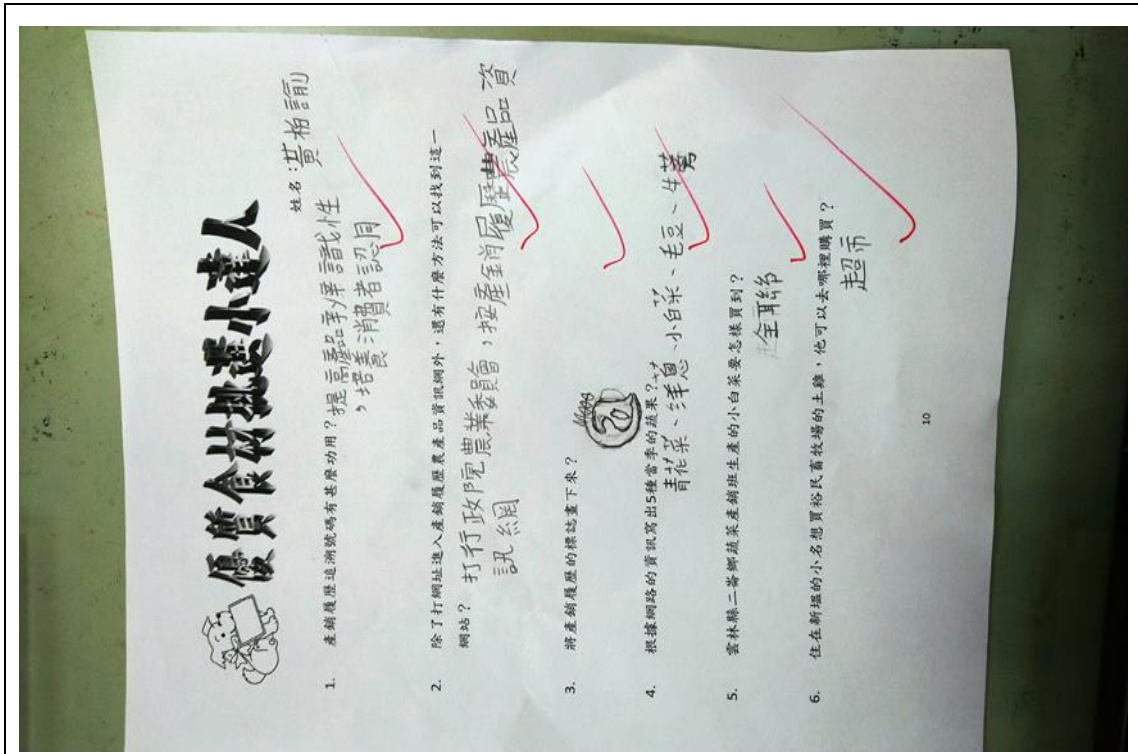 優質食材挑選小達人
姓名：黃柏諭
1. 產銷履歷追溯號碼有甚麼功用？提高產品辨識性
，培養消費者認同
2. 除了打網址進入產銷履歷農產品資訊網外，還有什麼方法可以找到這一
網站？打行政院農業委員會，按產銷履歷農產品資
訊網
3. 將產銷履歷的標誌畫下來？
4. 根據網路的資訊寫出5種當季的蔬果？
青花菜、洋蔥、小白菜、毛豆、牛蒡
5. 雲林縣二崙鄉蔬菜產銷班生產的小白菜要怎樣買到？
全聯
6. 住在新塭的小名想買裕民畜牧場的土雞，他可以去哪裡購買？
超市
10